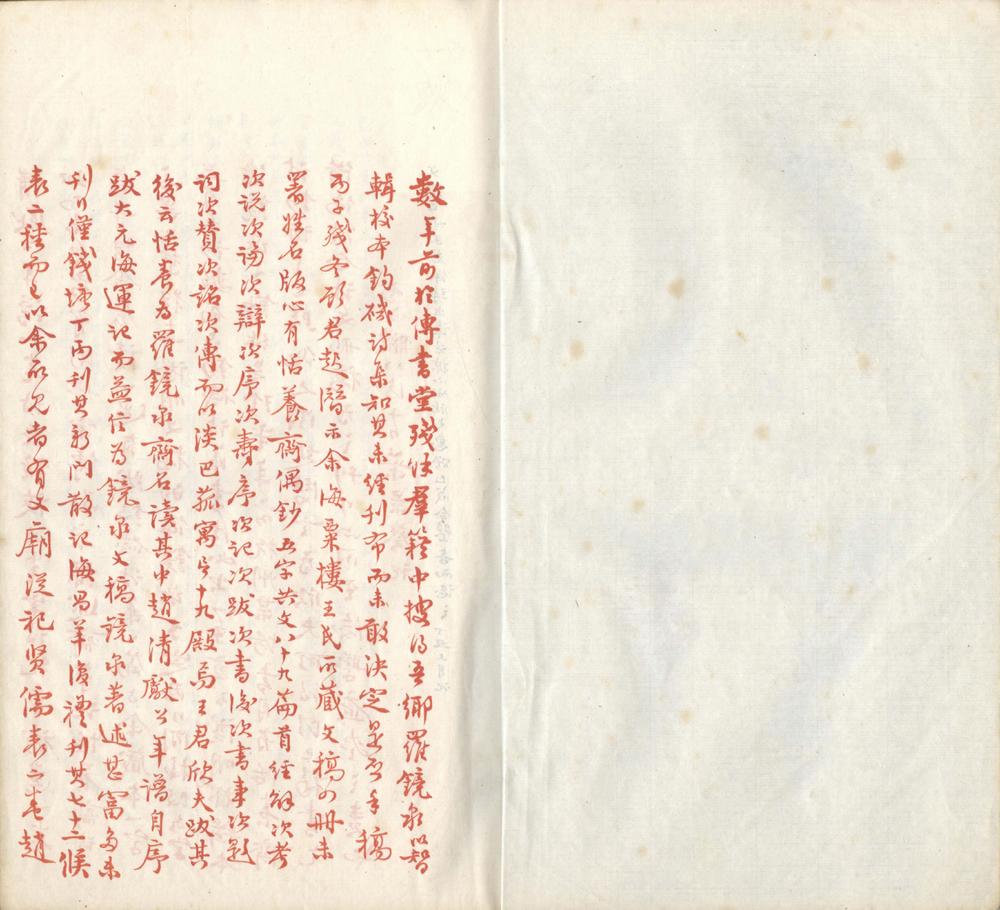 數年前於傅書堂殘佚羣籍中搜得吾鄉羅鏡泉以智
輯校本釣磯詩集知其未經刊布而未敢決定是否手稿
丙子殘冬顧君起潛示余海粟樓王氏所藏文稿四冊未
署姓名版心有恬養齋偶鈔五字共文八十九篇首經解次考
次說次論次辯次序次壽序次記次跋次書後次書事次題
詞次贊次銘次傳而以淡巴菰寓言十九殿焉王君欣夫跋其
後云恬養為羅鏡泉齋名讀其中趙清獻公年譜自序
跋大元海運記而益信為鏡泉文稿鏡泉著述甚富多未
刊行僅錢塘丁丙刊其新門散記海昌羊復禮刊其七十二候
表二種而已以余所見者有文廟從祀賢儒表二卷趙